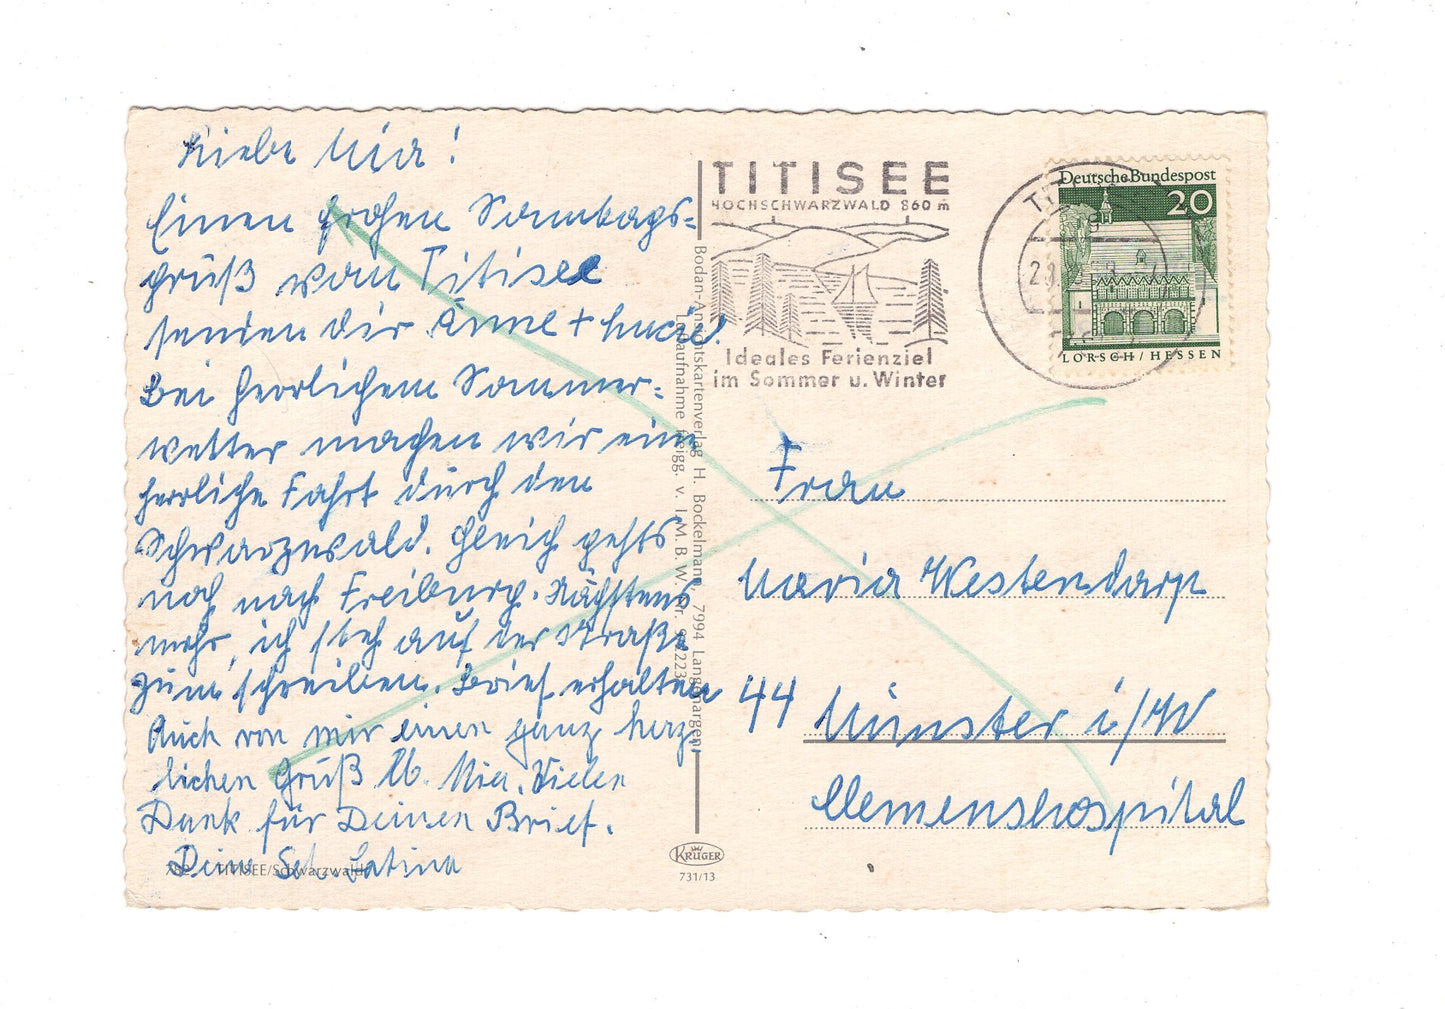 Liebe Mia!
Einen frohen Sonntags-
gruß von Titisee
senden dir Änne + Lucie!
Bei herrlichem Sommer-
wetter machen wir eine
herrliche Fahrt durch den
Schwarzwald. Gleich gehts
noch nach Freiburg. Nächstens
mehr, ich steh auf der Straße
zum schreiben. Brief erhalten
Auch von mir einen ganz herz-
lichen Gruß lb. Mia. Vielen
Dank für Deinen Brief.
Deine Sr. Latina
TITISEE/Schwarzwald
Bodan-Ansichtskartenverlag H. Bockelmann, 7994 Langenargen
Luftaufnahme freigg. v. I.M.B.W. Nr.
KRÜGER
731/13
TITISEE
HOCHSCHWARZWALD 860 m
Ideales Ferienziel
im Sommer u. Winter
Deutsche Bundespost
20
LORSCH / HESSEN
Frau
Maria Westendarp
44 Münster i/W
Clemenshospital